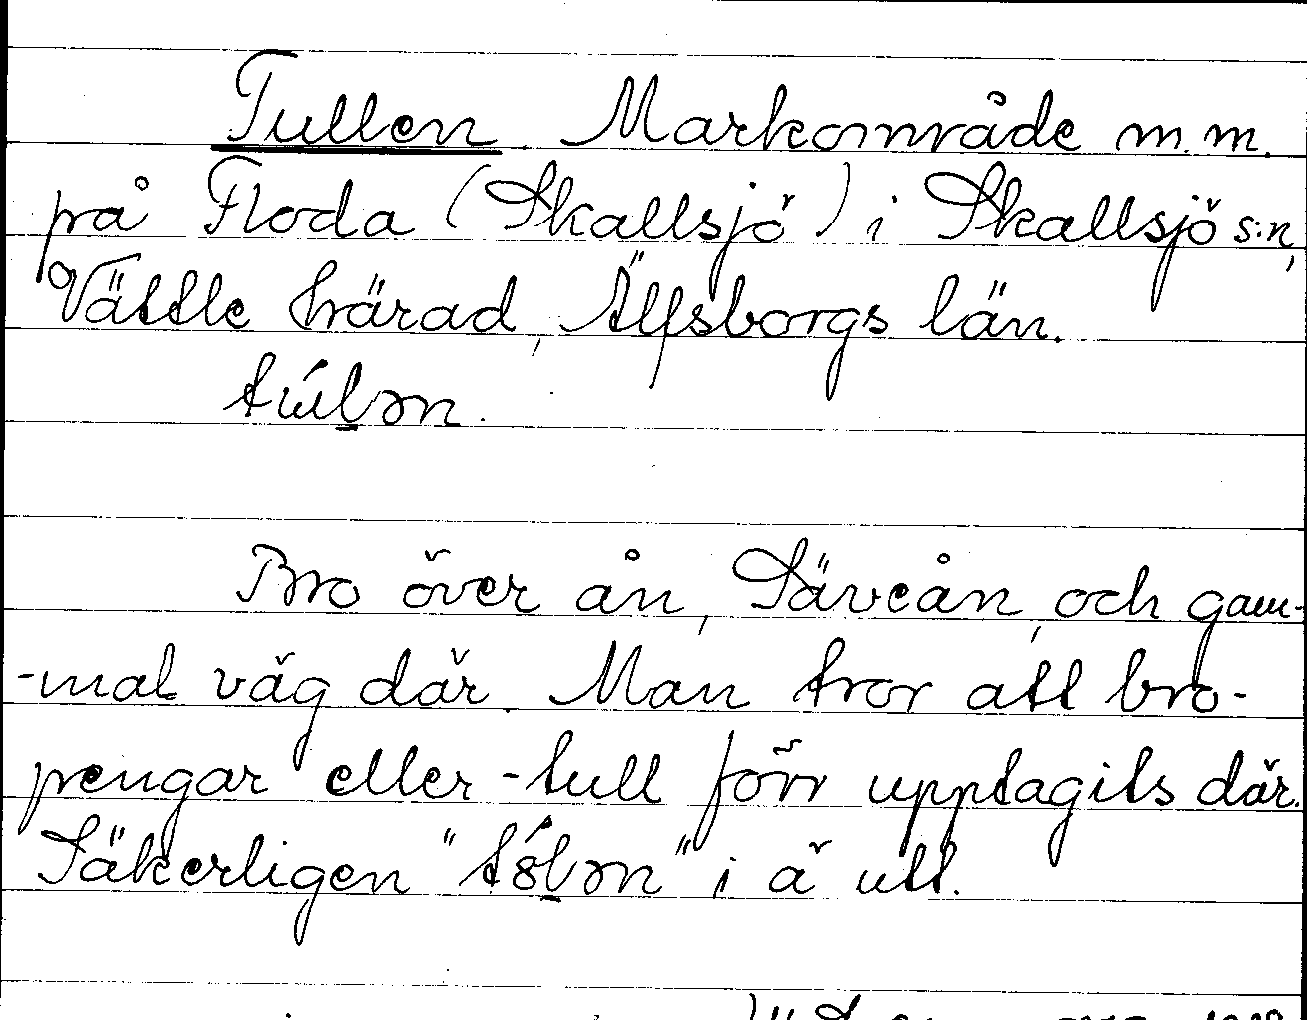 Tullen. Markområde m.m.
på Floda (Skallsjö) i Skallsjö s:n,
Vättle härad, Älfsborgs län.
túlən.
Bro över ån, Säveån, och gam-
-mal väg där. Man tror att bro-
pengar eller -tull förr upptagits där.
Säkerligen "tólən" i ä utt.